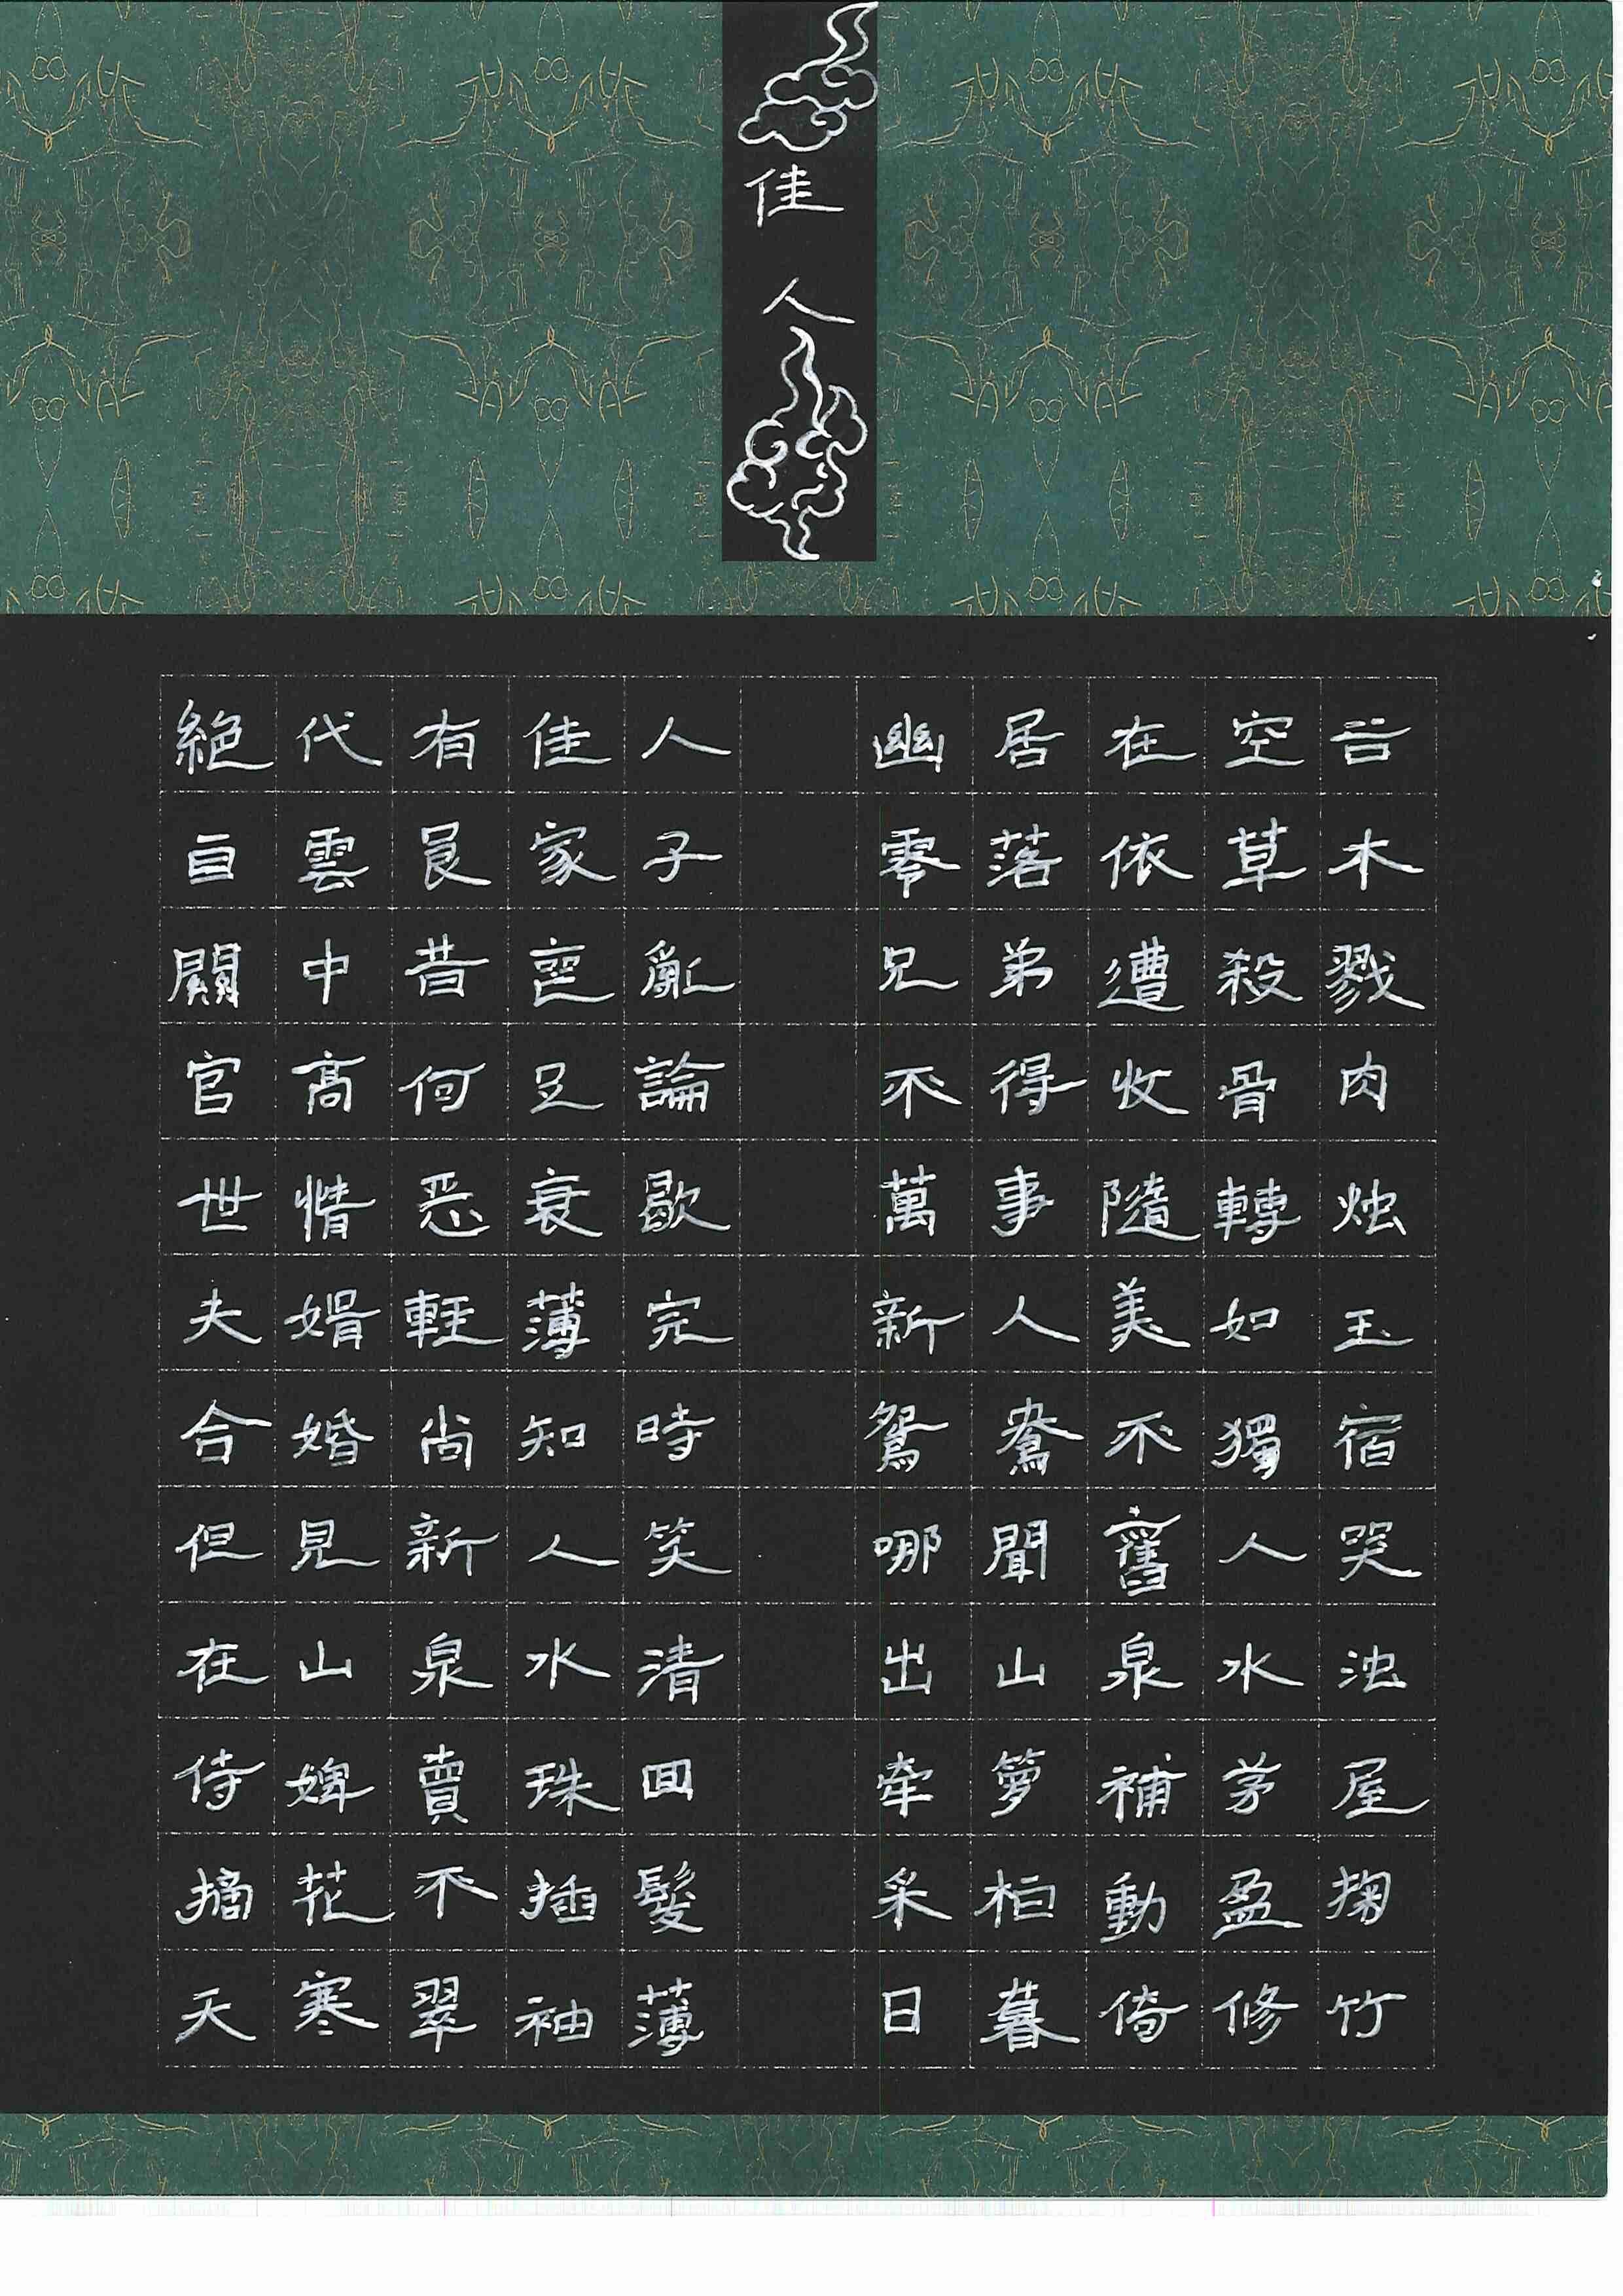 佳人
絕代有佳人 幽居在空谷
自雲良家子 零落依草木
關中昔喪亂 兄弟遭殺戮
官高何足論 不得收骨肉
世情恶衰歇 萬事隨轉烛
夫婿輕薄完 新人美如玉
合婚尚知時 鴛鴦不獨宿
但見新人笑 哪聞舊人哭
在山泉水清 出山泉水浊
侍婢賣珠回 牵箩補茅屋
摘花不插髮 采柏動盈掬
天寒翠袖薄 日暮倚修竹